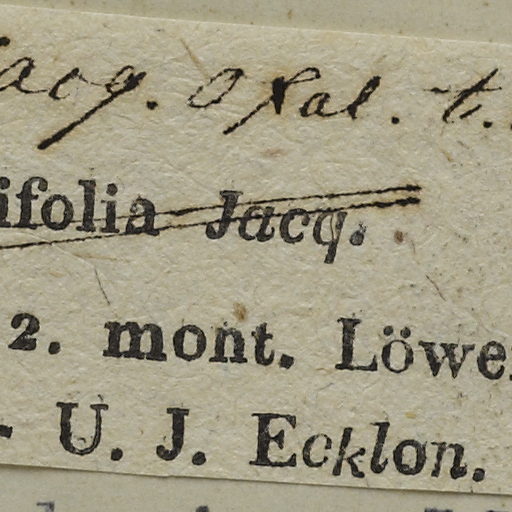 Jacq. Oxal. t.
ifolia Jacq.
2. mont. Löwe
- U. J. Ecklon.